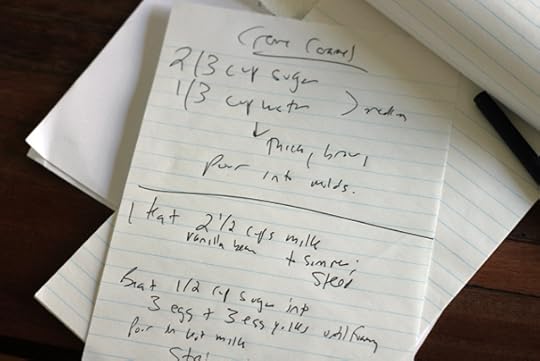 Creme Caramel
2/3 cup sugar
1/3 cup water
↓ thick, brown
Pour into molds.
1 Heat 2 1/2 cups milk
vanilla bean + simmer;
Steep
Beat 1/2 cup sugar into
3 egg + 3 egg yolks until foamy
Pour in hot milk